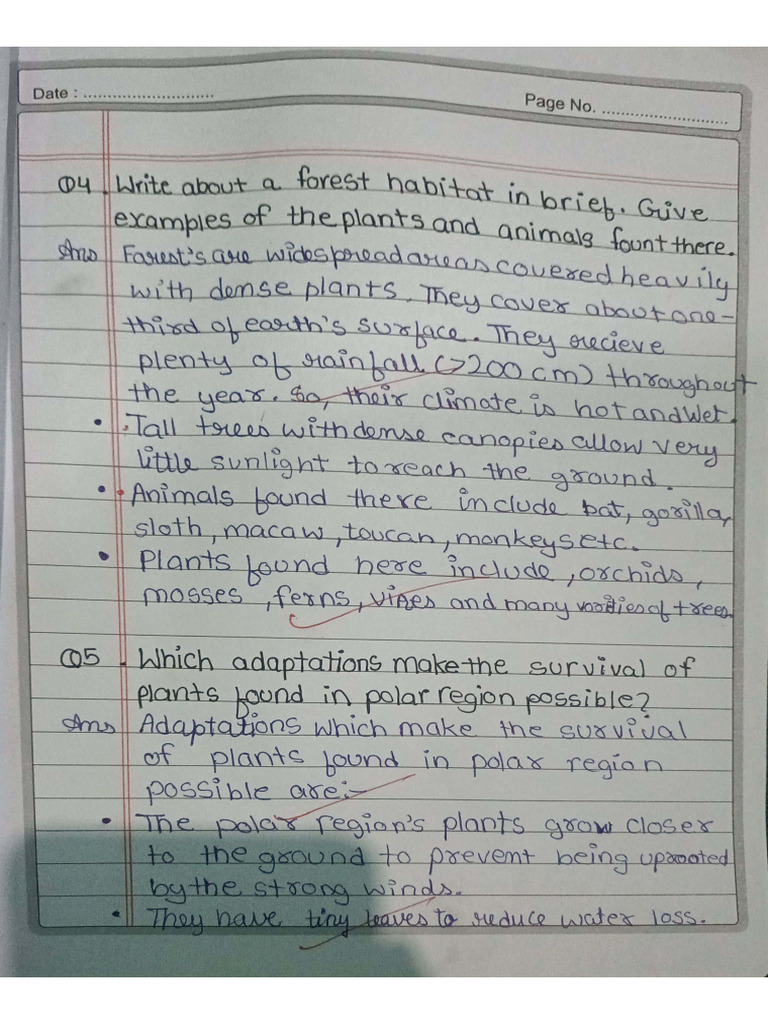 Date : ............................
Page No. ............................
Q4. Write about a forest habitat in brief. Give
examples of the plants and animals fount there.
Ans Farest's are widespread areas covered heavily
with dense plants. They cover about one-
third of earth's surface. They recieve
plenty of rainfall (>200 cm) throughout
the year. So, their climate is hot and wet.
• Tall trees with dense canopies allow very
little sunlight to reach the ground.
• Animals found there include bat, gorilla,
sloth, macaw, toucan, monkeys etc.
• Plants found here include, orchids,
mosses, ferns, vines and many of trees.
Q5. Which adaptations make the survival of
plants found in polar region possible?
Ans Adaptations which make the survival
of plants found in polar region
possible are:-
• The polar region's plants grow closer
to the ground to prevent being uprooted
by the strong winds.
• They have tiny leaves to reduce water loss.